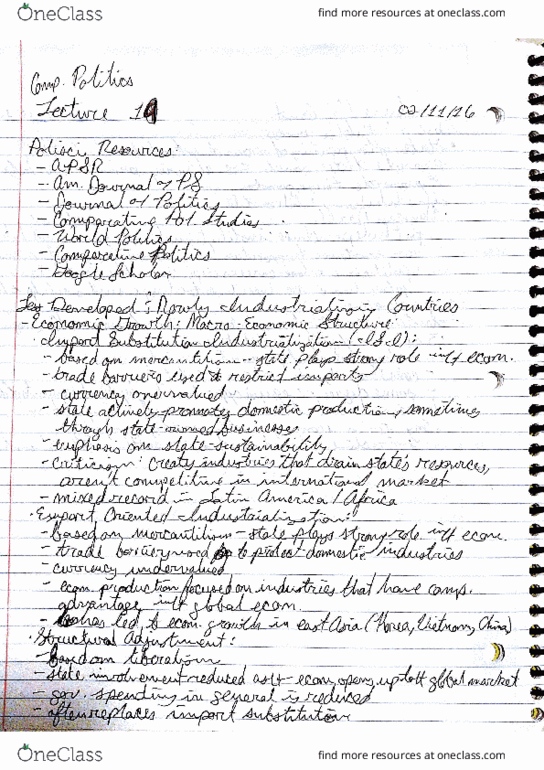 OneClass
find more resources at oneclass.com
Comp. Politics
Lecture 10
02/11/16
Polisci Resources:
- APSR
- Am. Journal of PS
- Journal of Politics
- Comparative Pol. Studies
- World Politics
- Comparative Politics
- Google Scholar
Less Developed & Newly Industrializing Countries
- Economic Growth: Macro-Economic Structure:
· Import Substitution Industrialization (ISI):
- based on mercantilism - state plays strong role in econ.
- trade barriers used to restrict imports
- currency overvalued
- state actively promotes domestic production, sometimes
through state-owned businesses
- emphasis on state-sustainability
- criticism: creates industries that drain state's resources,
aren't competitive in international market
- mixed record in Latin America / Africa
· Export Oriented Industrialization:
- based on mercantilism - state plays strong role in econ.
- trade barriers used to protect domestic industries
- currency undervalued
- econ. production focused on industries that have comp.
advantage in global econ.
- has led to econ. growth in east Asia (Korea, Vietnam, China)
· Structural Adjustment:
- based on liberalism
- state involvement reduced as econ. opens up to global market
- gov. spending in general is reduced
- often replaces import substitution
OneClass
find more resources at oneclass.com